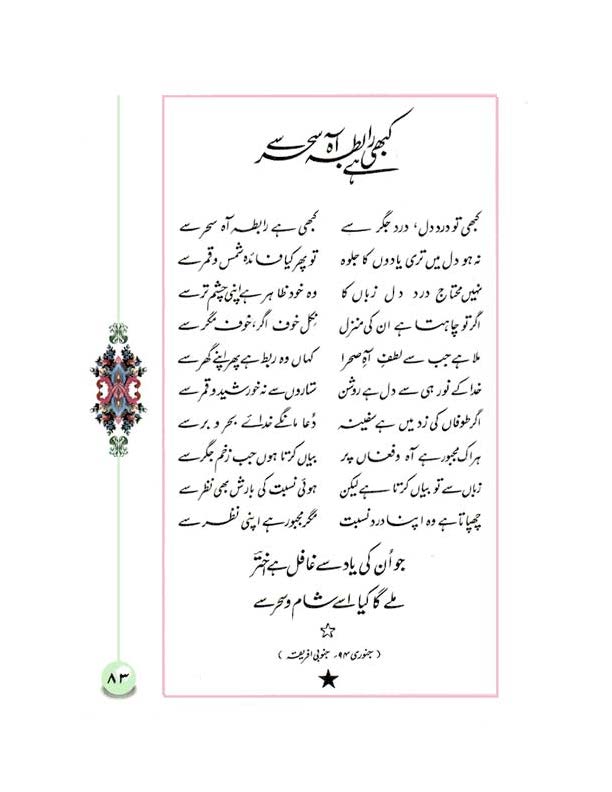 کبھی ہے رابطہ آہ سحر سے
کبھی تو درد دل، درد جگر سے کبھی ہے رابطہ آہ سحر سے
نہ ہو دل میں تری یادوں کا جلوہ تو پھر کیا فائدہ شمس و قمر سے
نہیں محتاج درد دل زباں کا وہ خود ظاہر ہے اپنی چشم تر سے
اگر تو چاہتا ہے ان کی منزل نکل خوف اگر، خوف مگر سے
ملا ہے جب سے لطف آہِ صحرا کہاں وہ ربط ہے پھر اپنے گھر سے
خدا کے نور ہی سے دل ہے روشن ستاروں سے نہ خورشید و قمر سے
اگر طوفاں کی زد میں ہے سفینہ دُعا مانگے خدائے بحر و بر سے
ہر اک مجبور ہے آہ و فغاں پر بیاں کرتا ہوں جب زخم جگر سے
زباں سے تو بیاں کرتا ہے لیکن ہوئی نسبت کی بارش بھی نظر سے
چھپاتا ہے وہ اپنا درد نسبت مگر مجبور ہے اپنی نظر سے
جو اُن کی یاد سے غافل ہے اخترؔ
ملے گا کیا اسے شام و سحر سے
(جنوری ۹۴ء جنوبی افریقہ)
۸۳